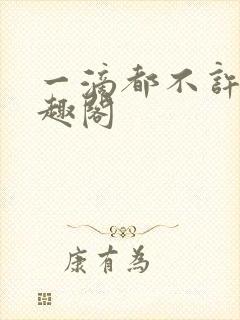 一滴都不許
趣閣
康有為